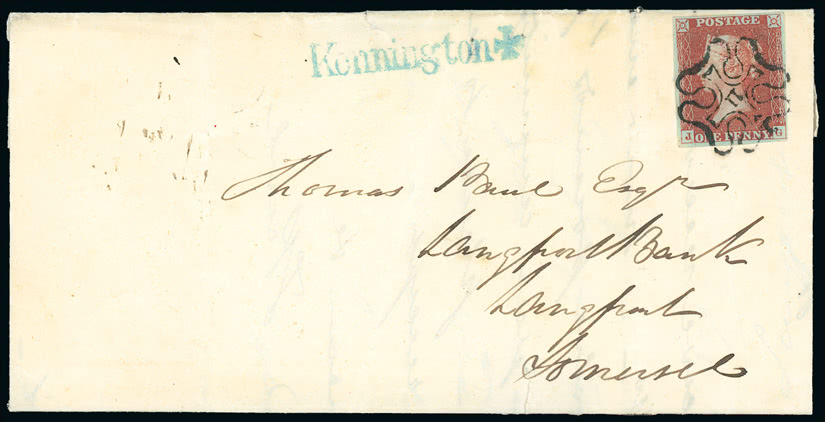 Kennington
POSTAGE
J ONE PENNY G
Thomas Paul Esqr
Langport Bank
Langport
Somerset